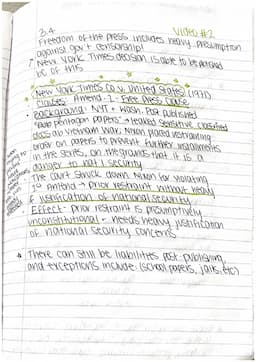 3.4 Video #2
Freedom of the press includes heavy presumption
against gov't censorship!
New York Times decision is able to be published
bc of this
New York Times Co v. United States (1971)
Clauses - Amend. 1 - Free Press Clause
Background - NYT + Wash. Post published
"the pentagon papers" → leaked sensitive classified
docs ab Vietnam War. Nixon placed restraining
order on papers to prevent further installments
in the series, on the grounds that it is a
danger to nat'l security
The court struck down Nixon for violating
1st Amend → prior restraint without heavy
justification of national security
Effect - prior restraint is presumptively
inconstitutional - needs heavy justification
of national security concerns
There can still be liabilities post-publishing,
and exceptions include: (school papers, jails, etc)